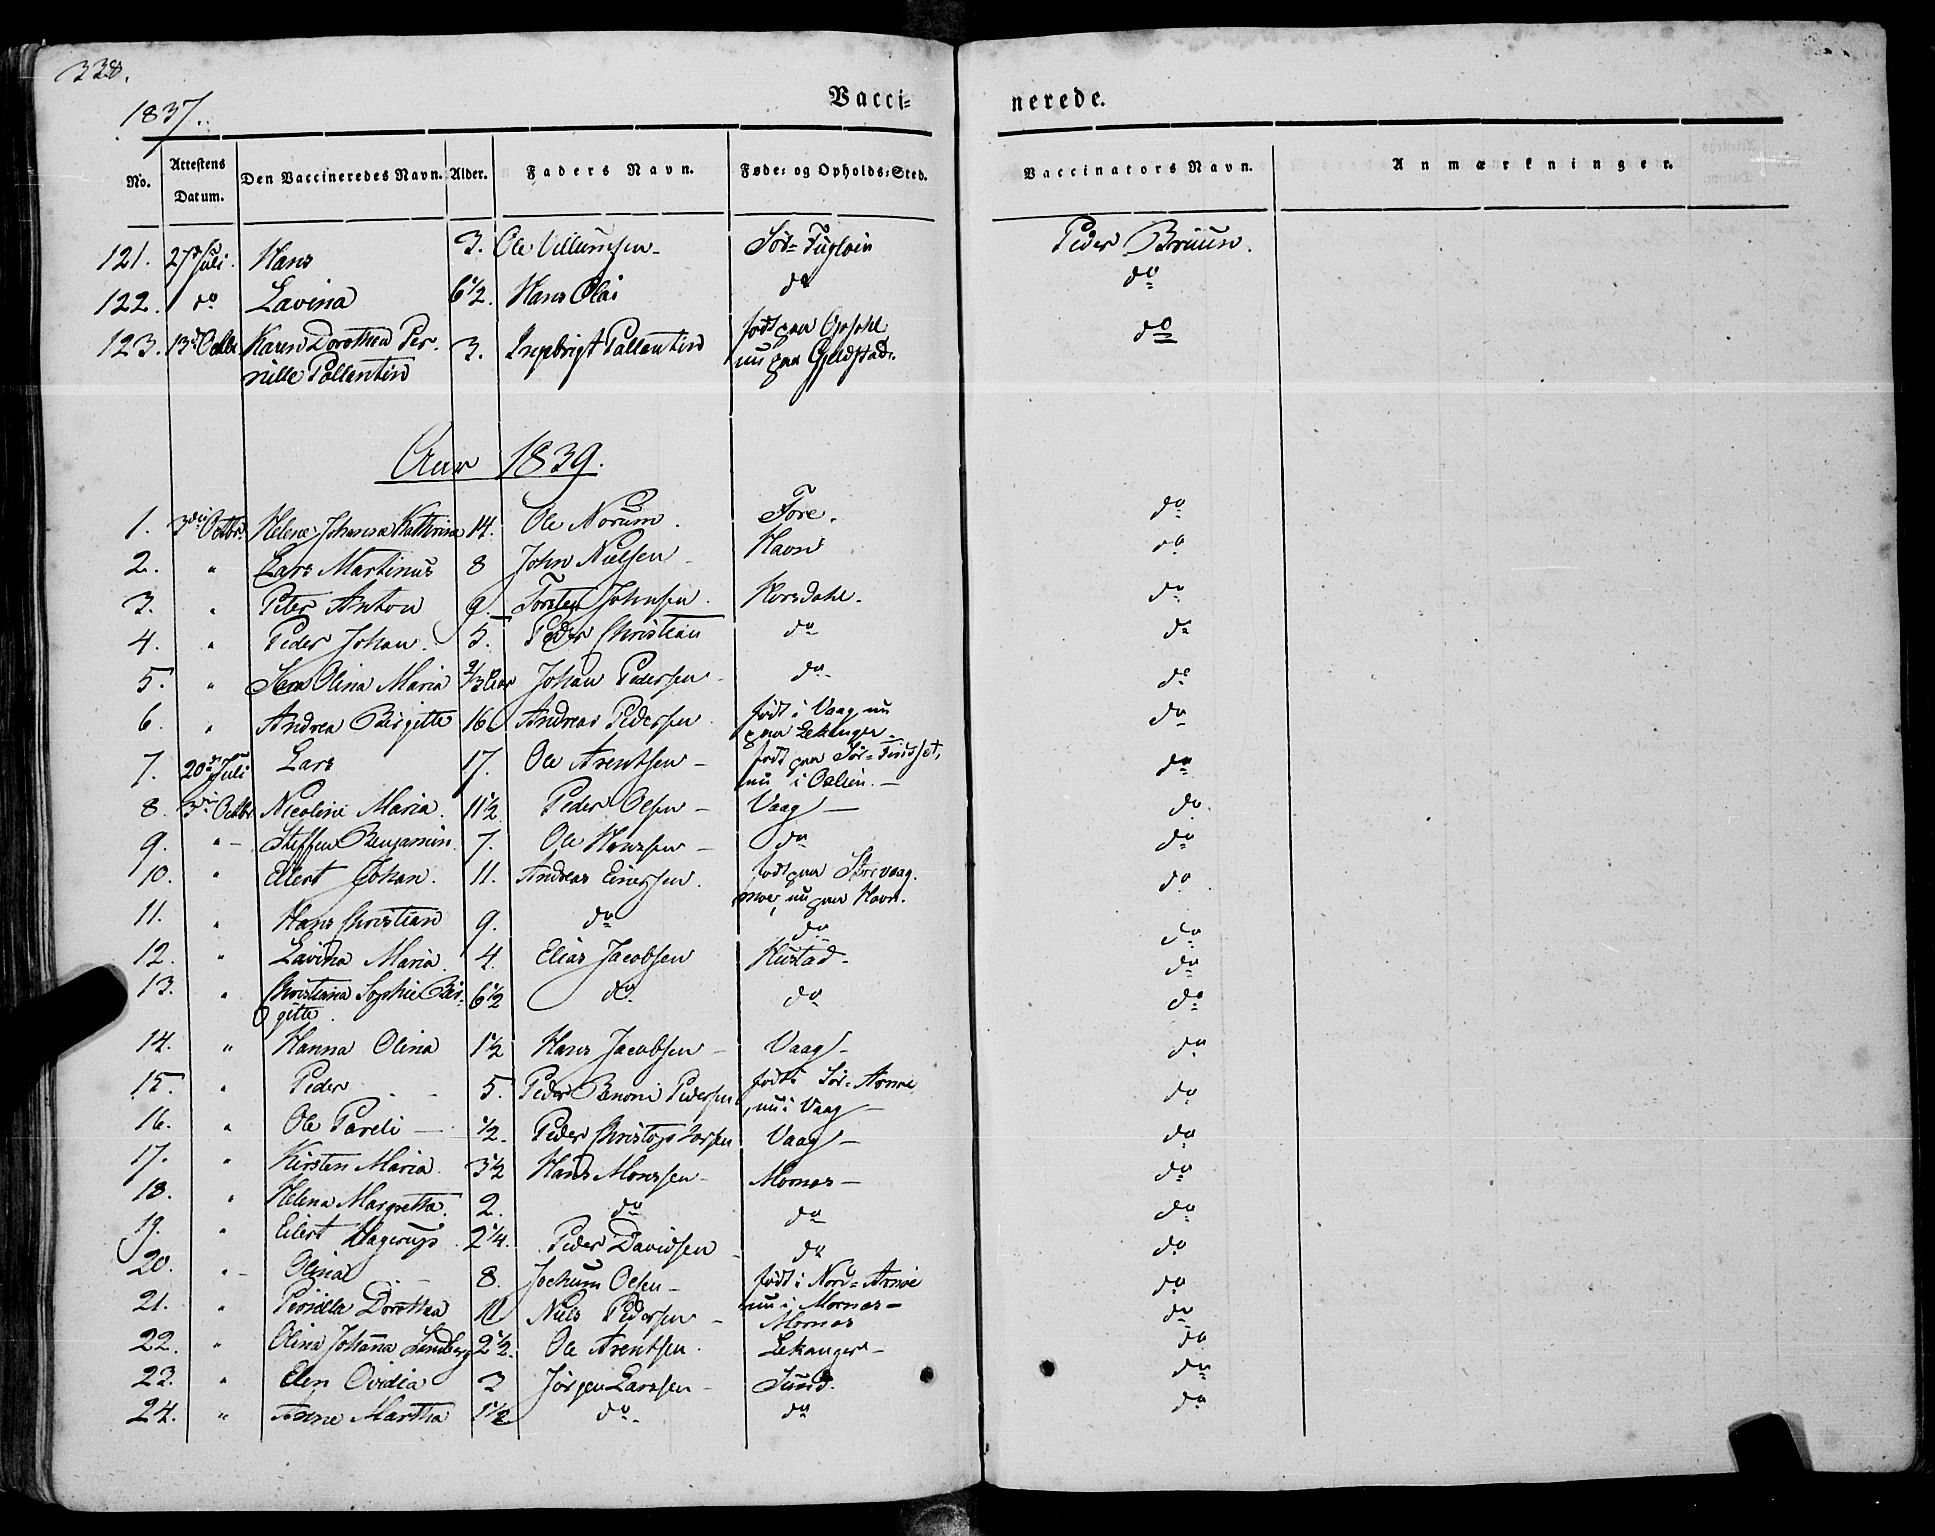 338.
1837.
Vacci= nerede.
No. Attestens Datum. Den Vaccineredes Navn. Alder. Faders Navn. Føde= og Opholds=Sted. Vaccinators Navn. Anmærkninger.
121. 27de Juli. Hans 3. Ole Villumsen Sör=Fugløin Peder Bruun.
122. do Lavina 6 1/2. Hans Olai do do
123. 13de Octbr Karen Dorothea Per- 3. Ingebrigt Pallentin født paa Opsahl do
nille Pallentin nu paa Gjeldstad.
Aar 1839.
1. 3die Octbr. Helene Johanna Kathrina 14. Ole Norum. Fore. do
2. " Lars Martinus 8 John Nielsen Havn do
3. " Peter Anton 9. Torsten Johnsen. Horsdahl do
4. " Peder Johan. 5. Peder Christian do do
5. " Olina Maria 2/3 Aar Johan Pedersen do do
6. " Andrea Birgitte 16 Andreas Pedersen. født i Vaag, nu do
paa Lekanger
7. 20de Juli Lars 17. Ole Arentsen født paa Sör=Findset, do
nu i Oslien.
8. 3die Octbr Nicoline Maria. 11 1/2 Peder Olsen Vaag do.
9. " Steffen Benjamin. 7. Ole Hanssen do do
10. " Eilert Johan. 11. Andreas Einersen. født paa Storvaag- do
moe, nu paa Havn.
11. " Hans Christian 9. do do do
12. " Lavina Maria. 4. Elias Jacobsen Hustad do
13. " Christiana Sophie Bir- 6 1/2 do do do
gitte.
14. " Hanna Olina 1 1/2 Hans Jacobsen Vaag do
15. " Peder 5. Peder Benoni Pedersen født i Sör=Arnøe, do
nu i Vaag
16. " Ole Pareli 1/2. Peder Christophersen Vaag do
17. " Kirsten Maria. 3 1/2 Hans Monssen Mornes do
18. " Helena Margretha. 2. do do do
19. " Eilert Hagerup. 2 1/4. Peder Davidsen do do
20. " Olina 8. Jochum Olsen født i Nord=Arnøe do
nu i Mornes
21. " Pernilla Dorothea 11 Niels Pedersen Mornes do
22. " Olina Johanna Sandberg 2 1/2. Ole Arentsen. Lekanger do
23. " Elen Ovidia 3 Jörgen Larssen Sund. do
24. " Anne Martha 1 1/2 do do do